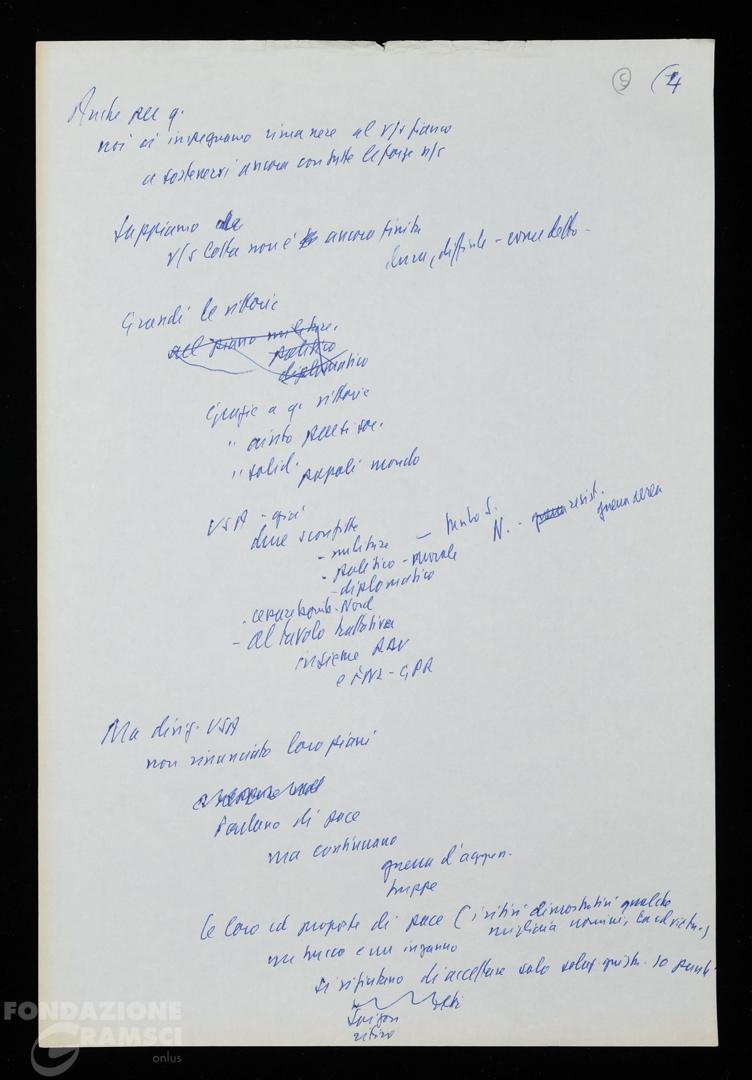 5 4
Anche per q.
noi ci impegnamo rimanere al v/s fianco
a sostenervi ancora con tutte le forze n/s
Sappiamo che
v/s lotta non è ancora finita
dura, difficile - come detto -
Grandi le vittorie
sul piano militare.
politico
diplomatico
Grazie a q. vittorie
" aiuto paesi soc.
" solid. popoli mondo
USA - già
due sconfitte
- militare - tanto S. N. - resist. guerra aerea
- politico - morale
- diplomatico
. cessare bomb. Nord
- al tavolo trattativa
insieme RDV
e FNL - GPR
Ma dirig. USA
non rinunciato loro piani
Parlano di pace
ma continuano
guerra d'aggres.
truppe
Le loro cd proposte di pace (i ritiri dimostrativi qualche
migliaia uomini,
un trucco e un inganno
si rifiutano di accettare sola soluz. giusta. 10 punti
Saigon
ritiro
FONDAZIONE
GRAMSCI
onlus